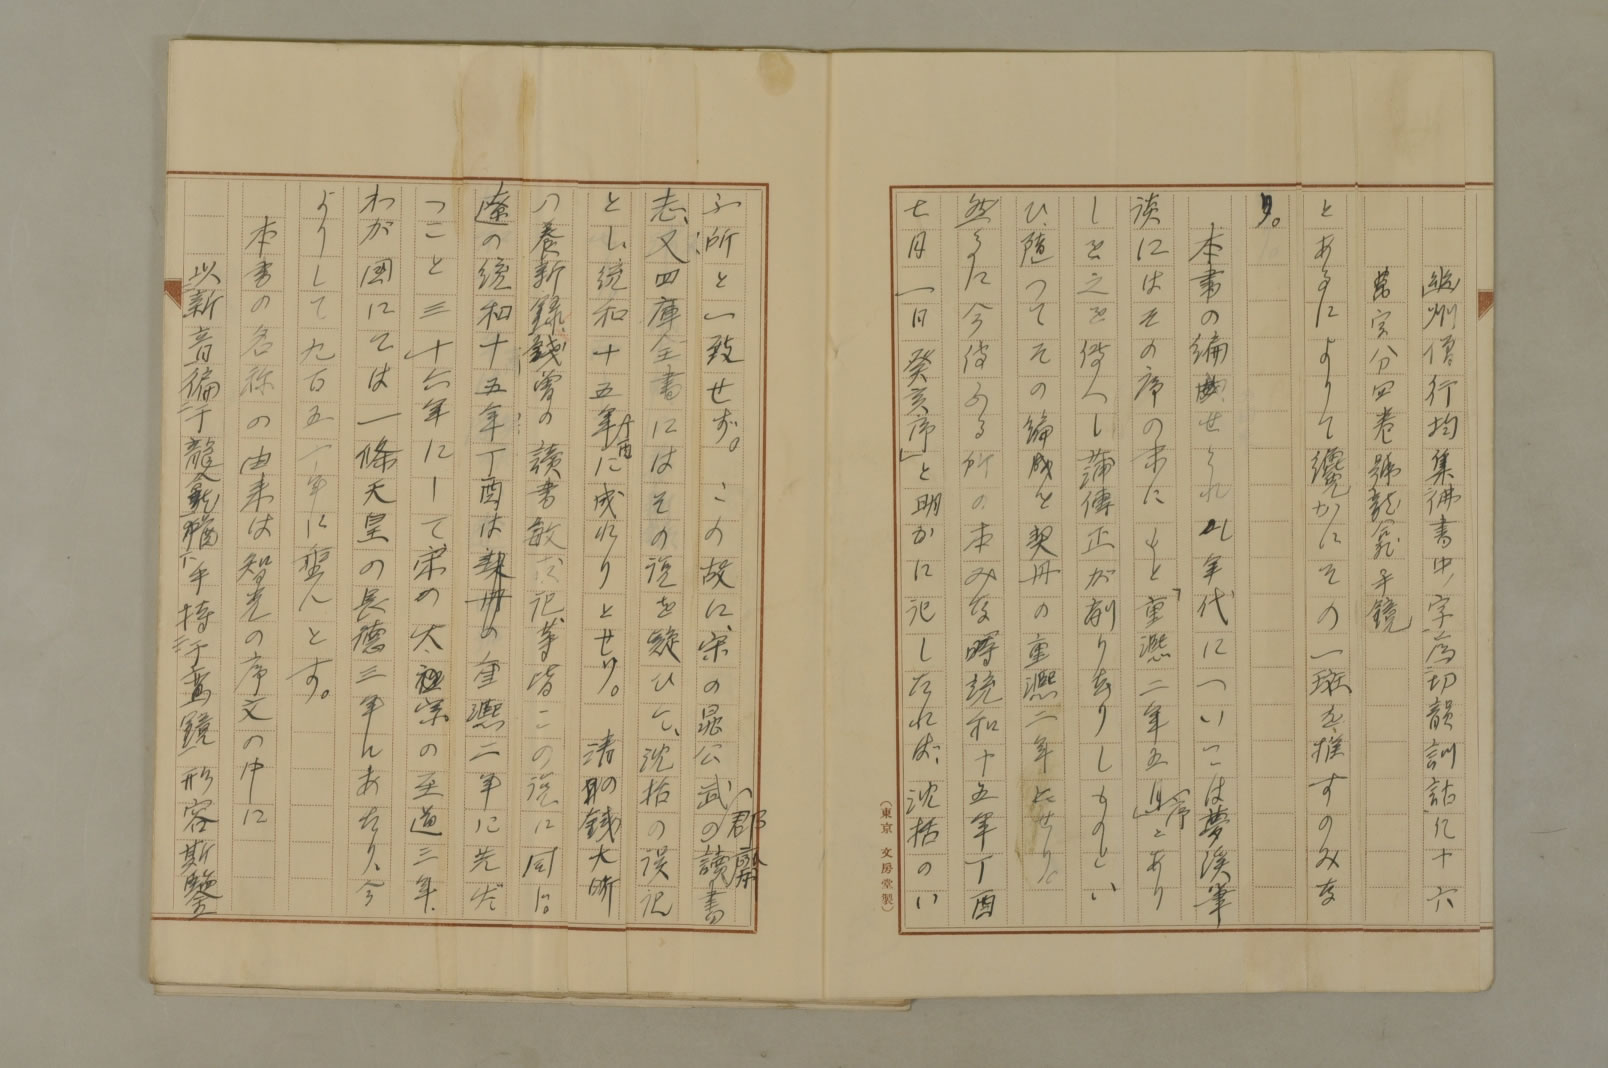 幽州僧行均集佛書中ノ字為切韻訓詁凡十六
萬字分四卷號龍龕手鏡
とあるによりて纔かにその一斑を推すのみな
り。
本書の編輯せられ年代については夢溪筆
談にはその序の末にもと「重凞二年五月序」とあり
しを之を傳へし蒲傳正が削り去りしものとい
ひ、随つてその編成を契丹の重凞二年とせり。
然るに今傳ふる所の本みな時統和十五年丁酉
七月一日癸亥序」と明かに記したれば、沈括のい
ふ所と一致せず。この故に、宋の晁公武の(郡齋)讀書
志、又四庫全書にはその説を疑ひて、沈括の誤記
とし、統和十五年に成れりとせり。清の錢大昕
の養新録、錢曾の讀書敏求記等皆この説に同じ。
遼の統和十五年丁酉は契丹の重凞二年に先だ
つこと三十六年にして宋の太宗の至道三年、
わが國にては一條天皇の長德三年にあたり、今
よりして九百五十年に垂んとす。
本書の名称の由来は智光の序文の中に
以新音徧于龍龕猶手持于鸞鏡形容斯鑒
(東京 文房堂製)